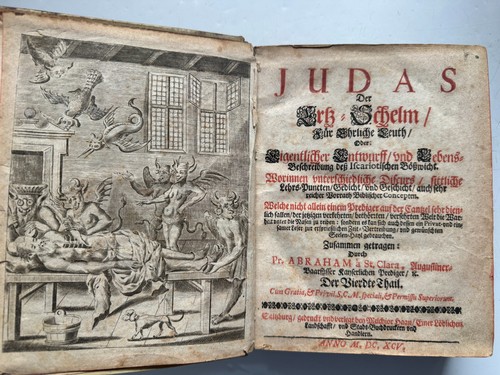 JUDAS
Der
Ertz-Schelm /
Für Ehrliche Leuth /
Oder:
Eigentlicher Entwurff / vnd Lebens-
Beschreibung deß Iscariotischen Bößwicht.
Worinnen vnterschiedliche Discurs / sittliche
Lehrs-Puncten / Gedicht / vnd Geschicht / auch sehr
reicher Vorrath Biblischer Concepten.
Welche nicht allein einem Prediger auf der Cantzel sehr dien-
lich fallen / der jetzigen verkehrten / bethörrten / versehrten Welt die War-
heit vnter die Nasen zu reiben: sondern es kan sich auch dessen ein Privat- vnd ein-
samer Leser zur ersprießlichen Zeit-Vertreibung / vnd gewünschten
Seelen-Hayl gebrauchen.
Zusammen getragen:
Durch
Pr. ABRAHAM à St. Clara, Augustiner-
Baarfüsser Kayserlichen Prediger / &c.
Der Vierdte Thail.
Cum Gratia, & Privil. S. C. M. speciali, & Permissu Superiorum.
Saltzburg / gedruckt vnd verlegt bey Melchior Haan / Einer Löblichen
Landschafft / vnd Stadt-Buchdruckern vnd
Handlern.
ANNO M. DC. XCV.